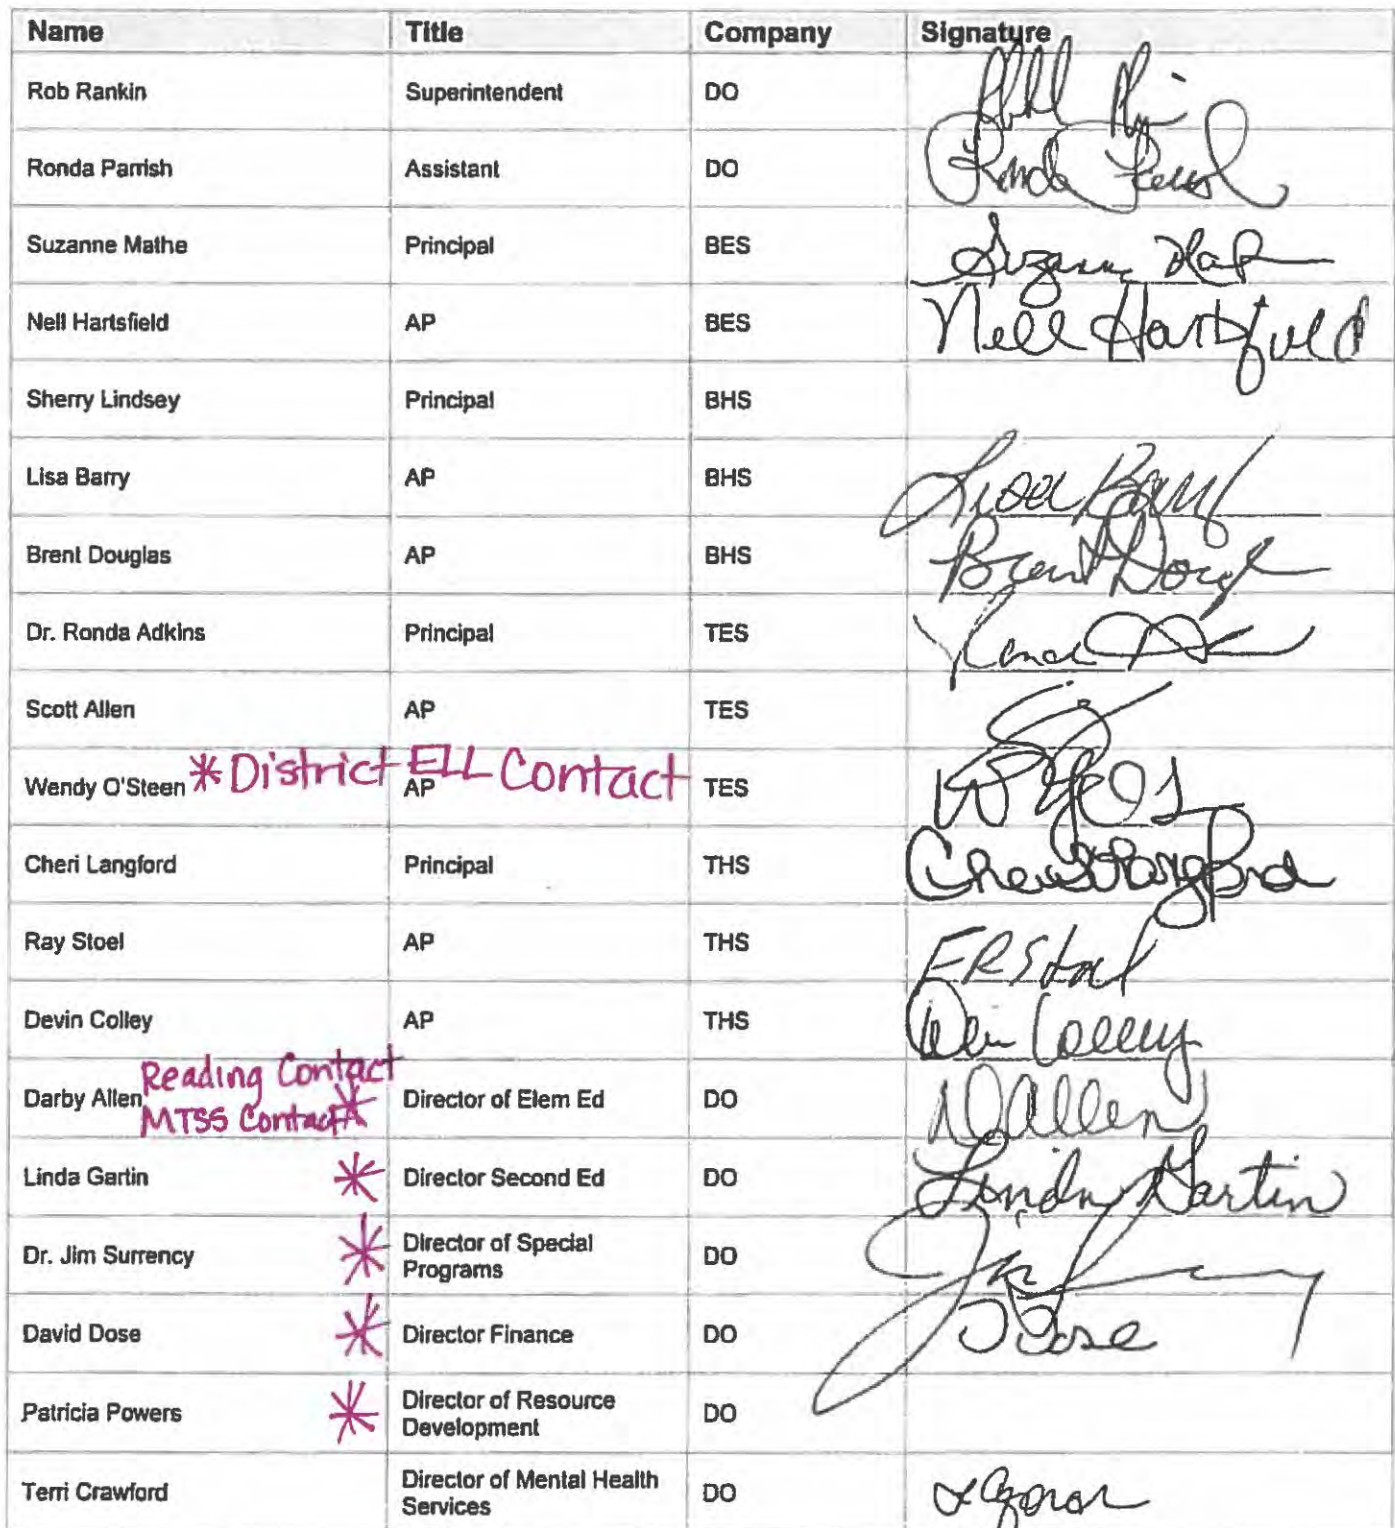 Name Title Company Signature
Rob Rankin Superintendent DO
Ronda Parrish Assistant DO
Suzanne Mathe Principal BES Suzanne
Nell Hartsfield AP BES Nell Hartsfield
Sherry Lindsey Principal BHS
Lisa Barry AP BHS Lisa Barry
Brent Douglas AP BHS Brent
Dr. Ronda Adkins Principal TES
Scott Allen AP TES
*District ELL Contact
Wendy O'Steen AP TES
Cheri Langford Principal THS
Ray Stoel AP THS
Devin Colley AP THS
Reading Contact
Darby Allen * Director of Elem Ed DO DAllen
MTSS Contact
Linda Gartin * Director Second Ed DO Linda Gartin
Dr. Jim Surrency * Director of Special
Programs DO
David Dose * Director Finance DO DDose
Patricia Powers * Director of Resource
Development DO
Terri Crawford Director of Mental Health
Services DO